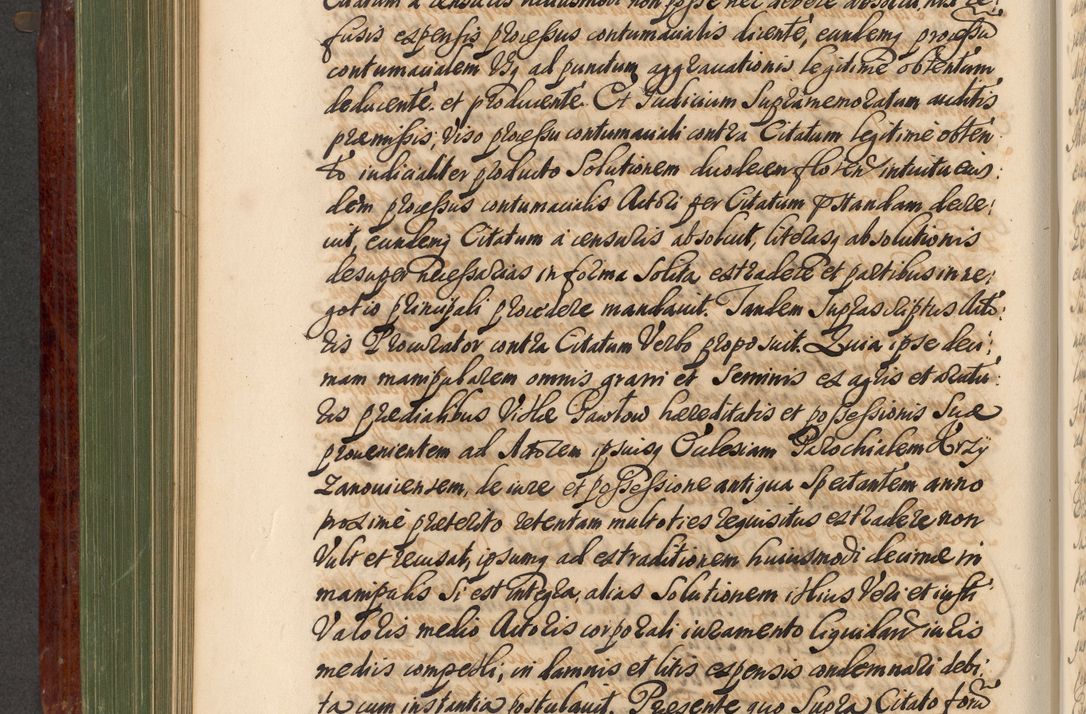 Citatum a censuris huiusmodi non posse nec debere absolui, nisi re:
fusis expensis processus contumacialis dicente, eundemq processu
contumacialem Usq ad punctum aggrauationis legitime obtentum
deducente et producente. Et Iudicium Supramemoratum auditis
praemissis, Viso processu contumaciali contra Citatum legitime obten:
to iudicialiter producto Solutionem duodecem floren intuitu eius:
dem processus contumacialis Actori per Citatum pstandam decre:
uit, eundemq Citatum a censuris absoluit, literasq absolutionis
desuper necessarias in forma Solita extradere et partibus in ne:
gotio principali procedere mandauit. Tandem Suprascriptus Acto:
ris Procurator contra Citatum Verbo proposuit. Quia ipse deci:
mam manipularem omnis grani et Seminis ex agris et aratu:
ris praedialibus Villae Pawlow haereditatis et possessionis Suae
prouenientem ad Actorem ipsiusq Ecclesiam Parochialem Krzy
zanouicensem, de iure et possessione antiqua Spectantem anno
proxime praeterito retentam multoties requisitus extradere non
Vult et recusat, ipsumq ad extraditionem huiusmodi decimae in
manipulis Si est integra, alias Solutionem illius Veri et iusti
Valoris medio Actoris corporali iuramento liquidand iuris
mediis compelli, in damnis et litis expensis condemnari debi:
ta cum instantia postulauit. Presente quo Supra Citato